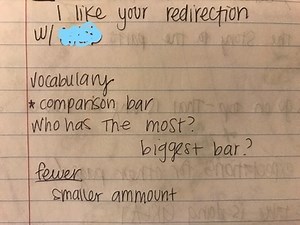 I like your redirection
w/
vocabulary
* comparison bar
who has the most?
biggest bar?
fewer
smaller ammount